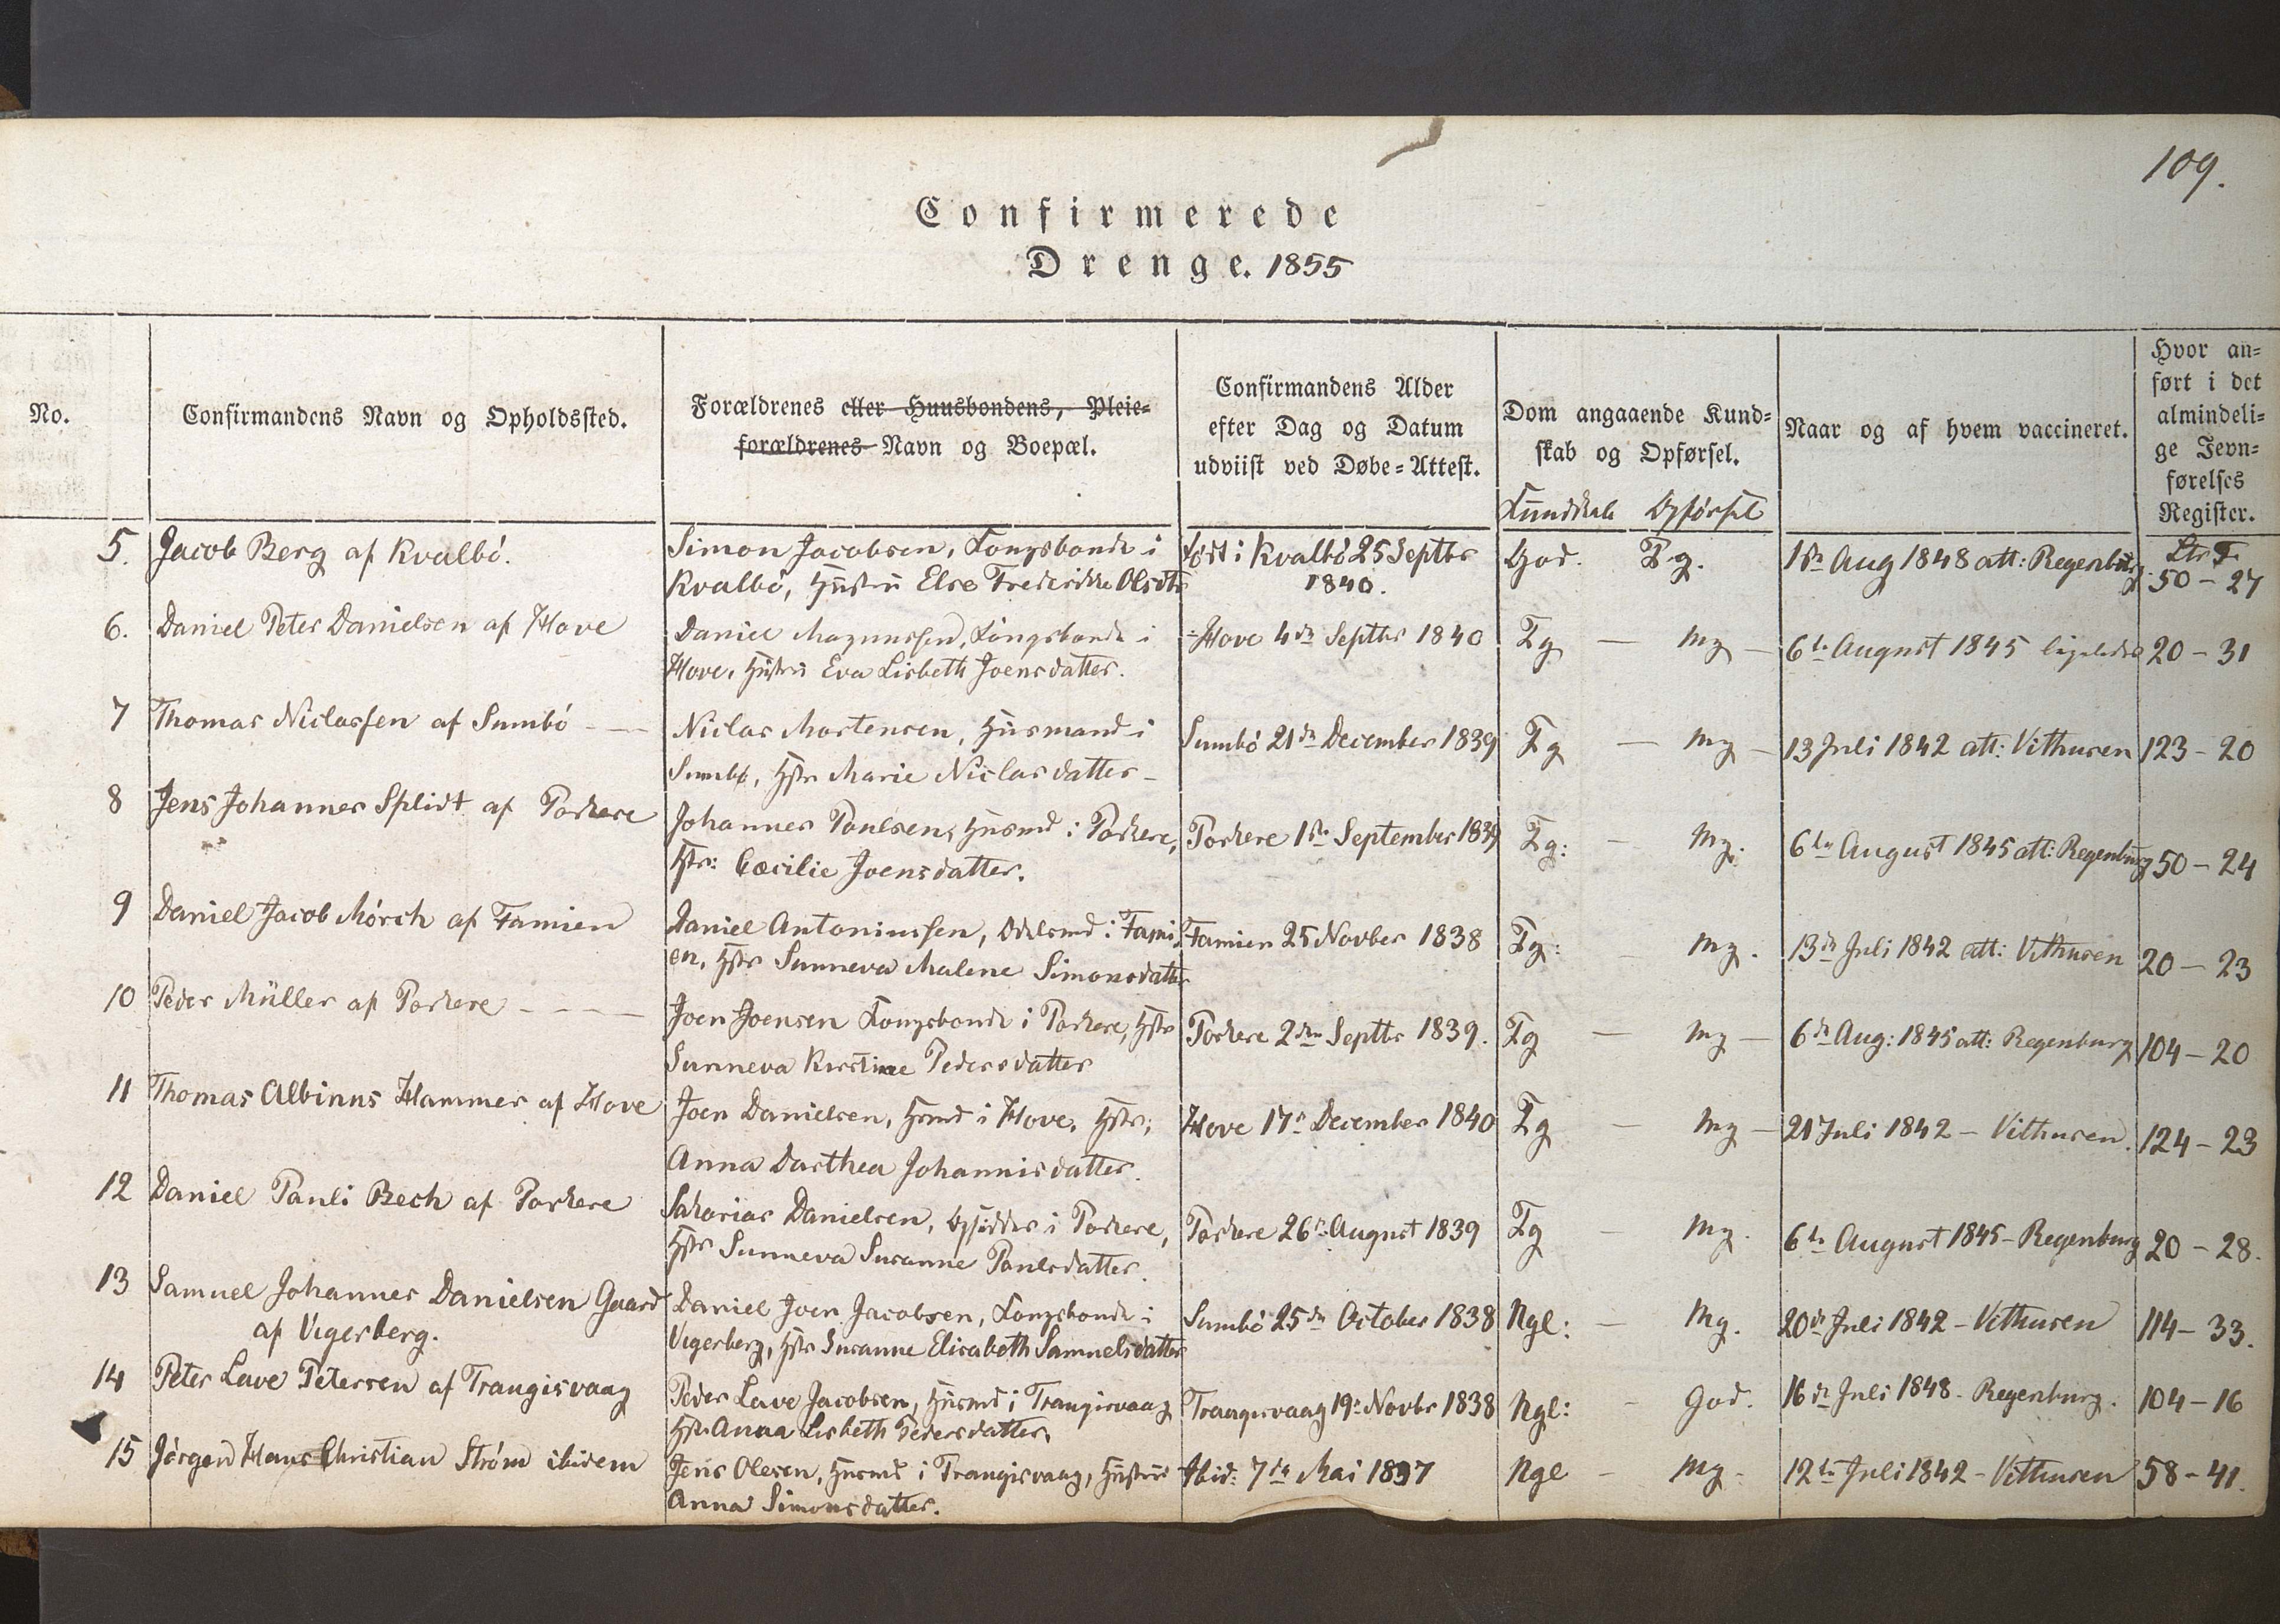 109.
Confirmerede
Drenge. 1855
No.
Confirmandens Navn og Opholdssted.
Forældrenes eller Huusbondens, Pleie=
forældrenes Navn og Boepæl.
Confirmandens Alder
efter Dag og Datum
udviist ved Døbe=Attest.
Dom angaaende Kund=
skab og Opførsel.
Kundskab Opførsel
Naar og af hvem vaccineret.
Hvor an=
ført i det
almindeli=
ge Jevn=
førelses
Register.
5. Jacob Berg af Kvalbö.
Simon Jacobsen, Kongsbonde i
Kvalbö, Hustru Else Frederikke Olsdtr
født i Kvalbö 25 Septbr
1840.
God. Tg.
1ste Aug 1848 att: Regenburg.
Ltr F.
50 - 27
6. Daniel Peter Danielsen af Hove
Daniel Magnussen, Kongsbonde i
Hove, Hustru Eva Lisbeth Joensdatter.
Hove 4de Septbr 1840
Tg — mg —
6te August 1845 ligeledes
20 - 31
7 Thomas Niclassen af Sumbö —
Niclas Mortensen, Husmand i
Sumbö, Hstr Marie Niclasdatter —
Sumbö 21de December 1839
Tg — mg —
13 Juli 1842 att: Vithusen
123 - 20
8 Jens Johannes Splidt af Porkere
Johannes Poulsen, Husmd i Porkere,
Hstr: Cæcilie Joensdatter.
Porkere 1ste September 1839
Tg: — mg.
6te August 1845 att: Regenburg
50 - 24
9 Daniel Jacob Mörch af Famien
Daniel Antoniussen, Odelsmd i Fami
en, Hstr Sunneva Malene Simonsdatter
Famien 25 Novber 1838
Tg: — mg.
13de Juli 1842 att: Vithusen
20 - 23
10 Peder Müller af Porkere - - - -
Joen Joensen Kongsbonde i Porkere, Hstr
Sunneva Kirstine Pedersdatter
Porkere 2den Septbr 1839.
Tg — mg —
6te Aug: 1845 att: Regenburg
104 - 20
11 Thomas Albinus Hammer af Hove
Joen Danielsen, Hsmd i Hove, Hstr:
Anna Dorthea Johannisdatter.
Hove 17de December 1840
Tg — mg —
21 Juli 1842 - Vithusen.
124 - 23
12 Daniel Pauli Bech af Porkere
Sakarias Danielsen, Opsidder i Porkere,
Hstr Sunneva Susanne Poulsdatter.
Porkere 26de August 1839
Tg — mg.
6te August 1845 - Regenburg
20 - 28.
13 Samuel Johannes Danielsen Gaard
af Vigerberg.
Daniel Joen Jacobsen, Kongsbonde i
Vigerberg, Hstr Susanne Elisabeth Samuelsdatter
Sumbö 25de October 1838
Ngl: — Mg.
20de Juli 1842 - Vithusen
114 - 33.
14 Peter Lave Petersen af Trangisvaag
Peder Lave Jacobsen, Husmd i Trangisvaag
Hstr. Anna Lisbeth Pedersdatter.
Trangisvaag 19de Novbr 1838
Ngl: — God.
16de Juli 1848 - Regenburg.
104 - 16
15 Jörgen Hans Christian Ström ibidem
Jens Olesen, Husmd i Trangisvaag, Hustru
Anna Simonsdatter.
Ibid: 7de Mai 1837
Ngl — mg -
12te Juli 1842 - Vithusen
58 - 41.